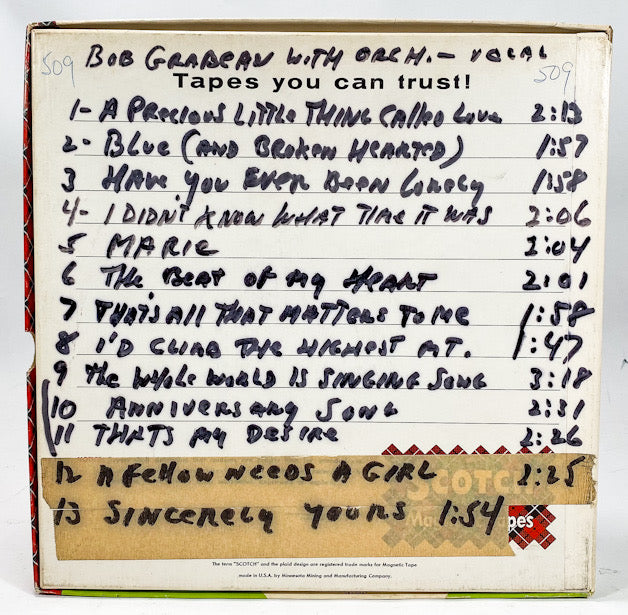 509 BOB GRABEAU WITH ORCH. - VOCAL 509
Tapes you can trust!
1- A PRECIOUS LITTLE THING CALLED LOVE 2:13
2- BLUE (AND BROKEN HEARTED) 1:57
3 HAVE YOU EVER BEEN LONELY 1:58
4- I DIDN'T KNOW WHAT TIME IT WAS 2:06
5 MARIE 2:04
6 THE BEAT OF MY HEART 2:01
7 THAT'S ALL THAT MATTERS TO ME 1:58
8 I'D CLIMB THE HIGHEST MT. 1:47
9 THE WHOLE WORLD IS SINGING SONG 3:18
10 ANNIVERSARY SONG 2:31
11 THATS MY DESIRE 2:26
12 A FELLOW NEEDS A GIRL 2:25
SCOTCH
13 SINCERELY YOURS 1:54
Tapes
The term "SCOTCH" and the plaid design are registered trade marks for Magnetic Tape
made in U.S.A. by Minnesota Mining and Manufacturing Company.